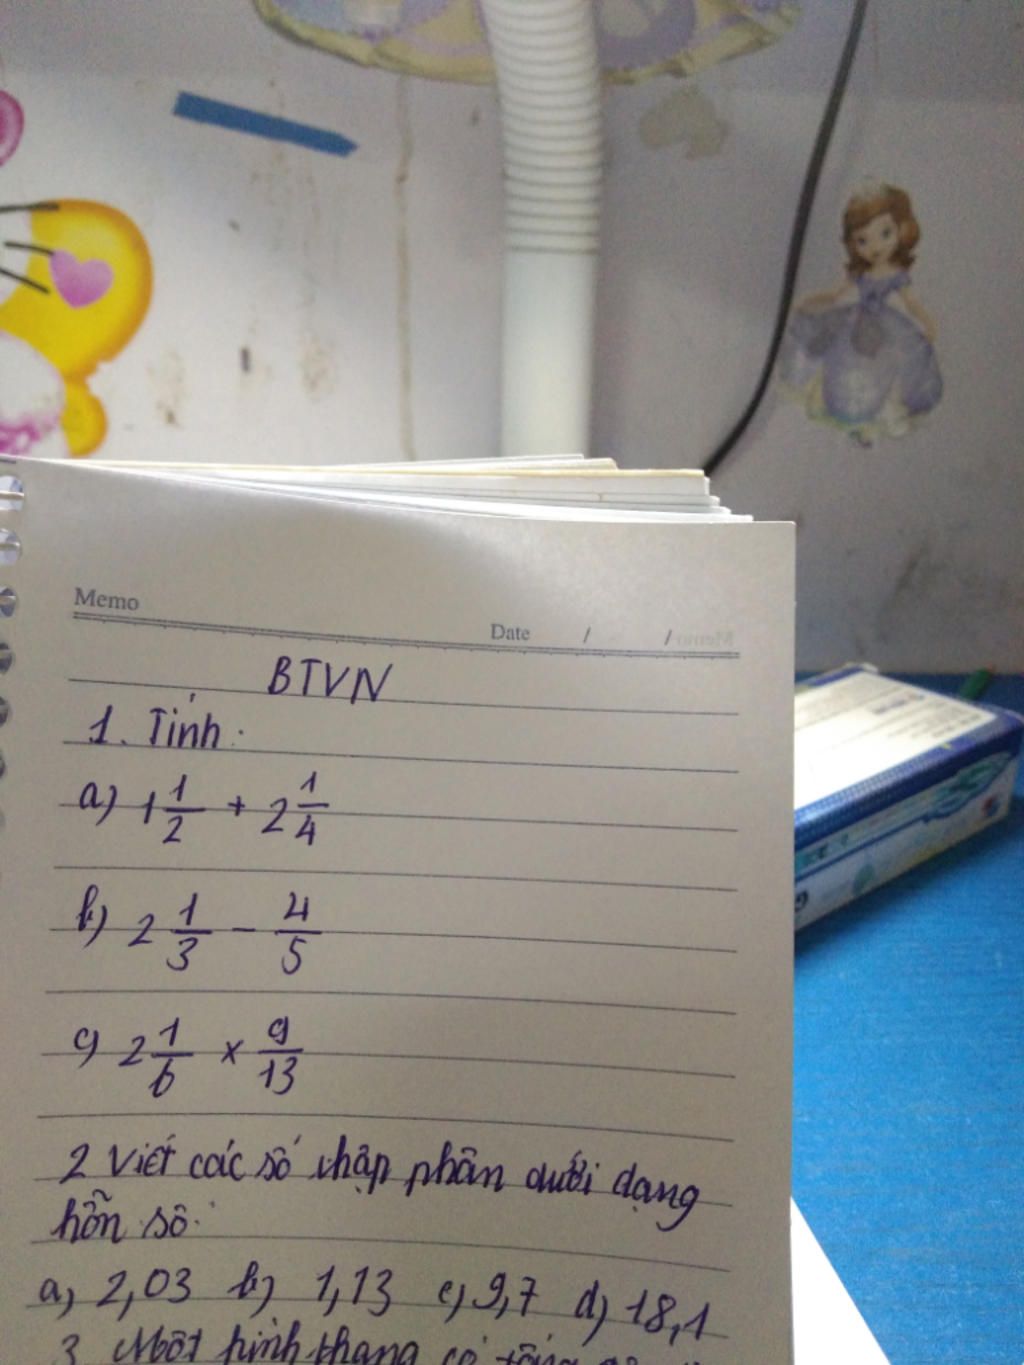 Memo
Date / /
BTVN
1. Tính:
a) 1 1/2 + 2 1/4
b) 2 1/3 - 4/5
c) 2 1/6 x 9/13
2 Viết các số thập phân dưới dạng
hỗn số.
a, 2,03 b) 1,13 c, 9,7 d) 18,1
3. Một hình thang có tổng